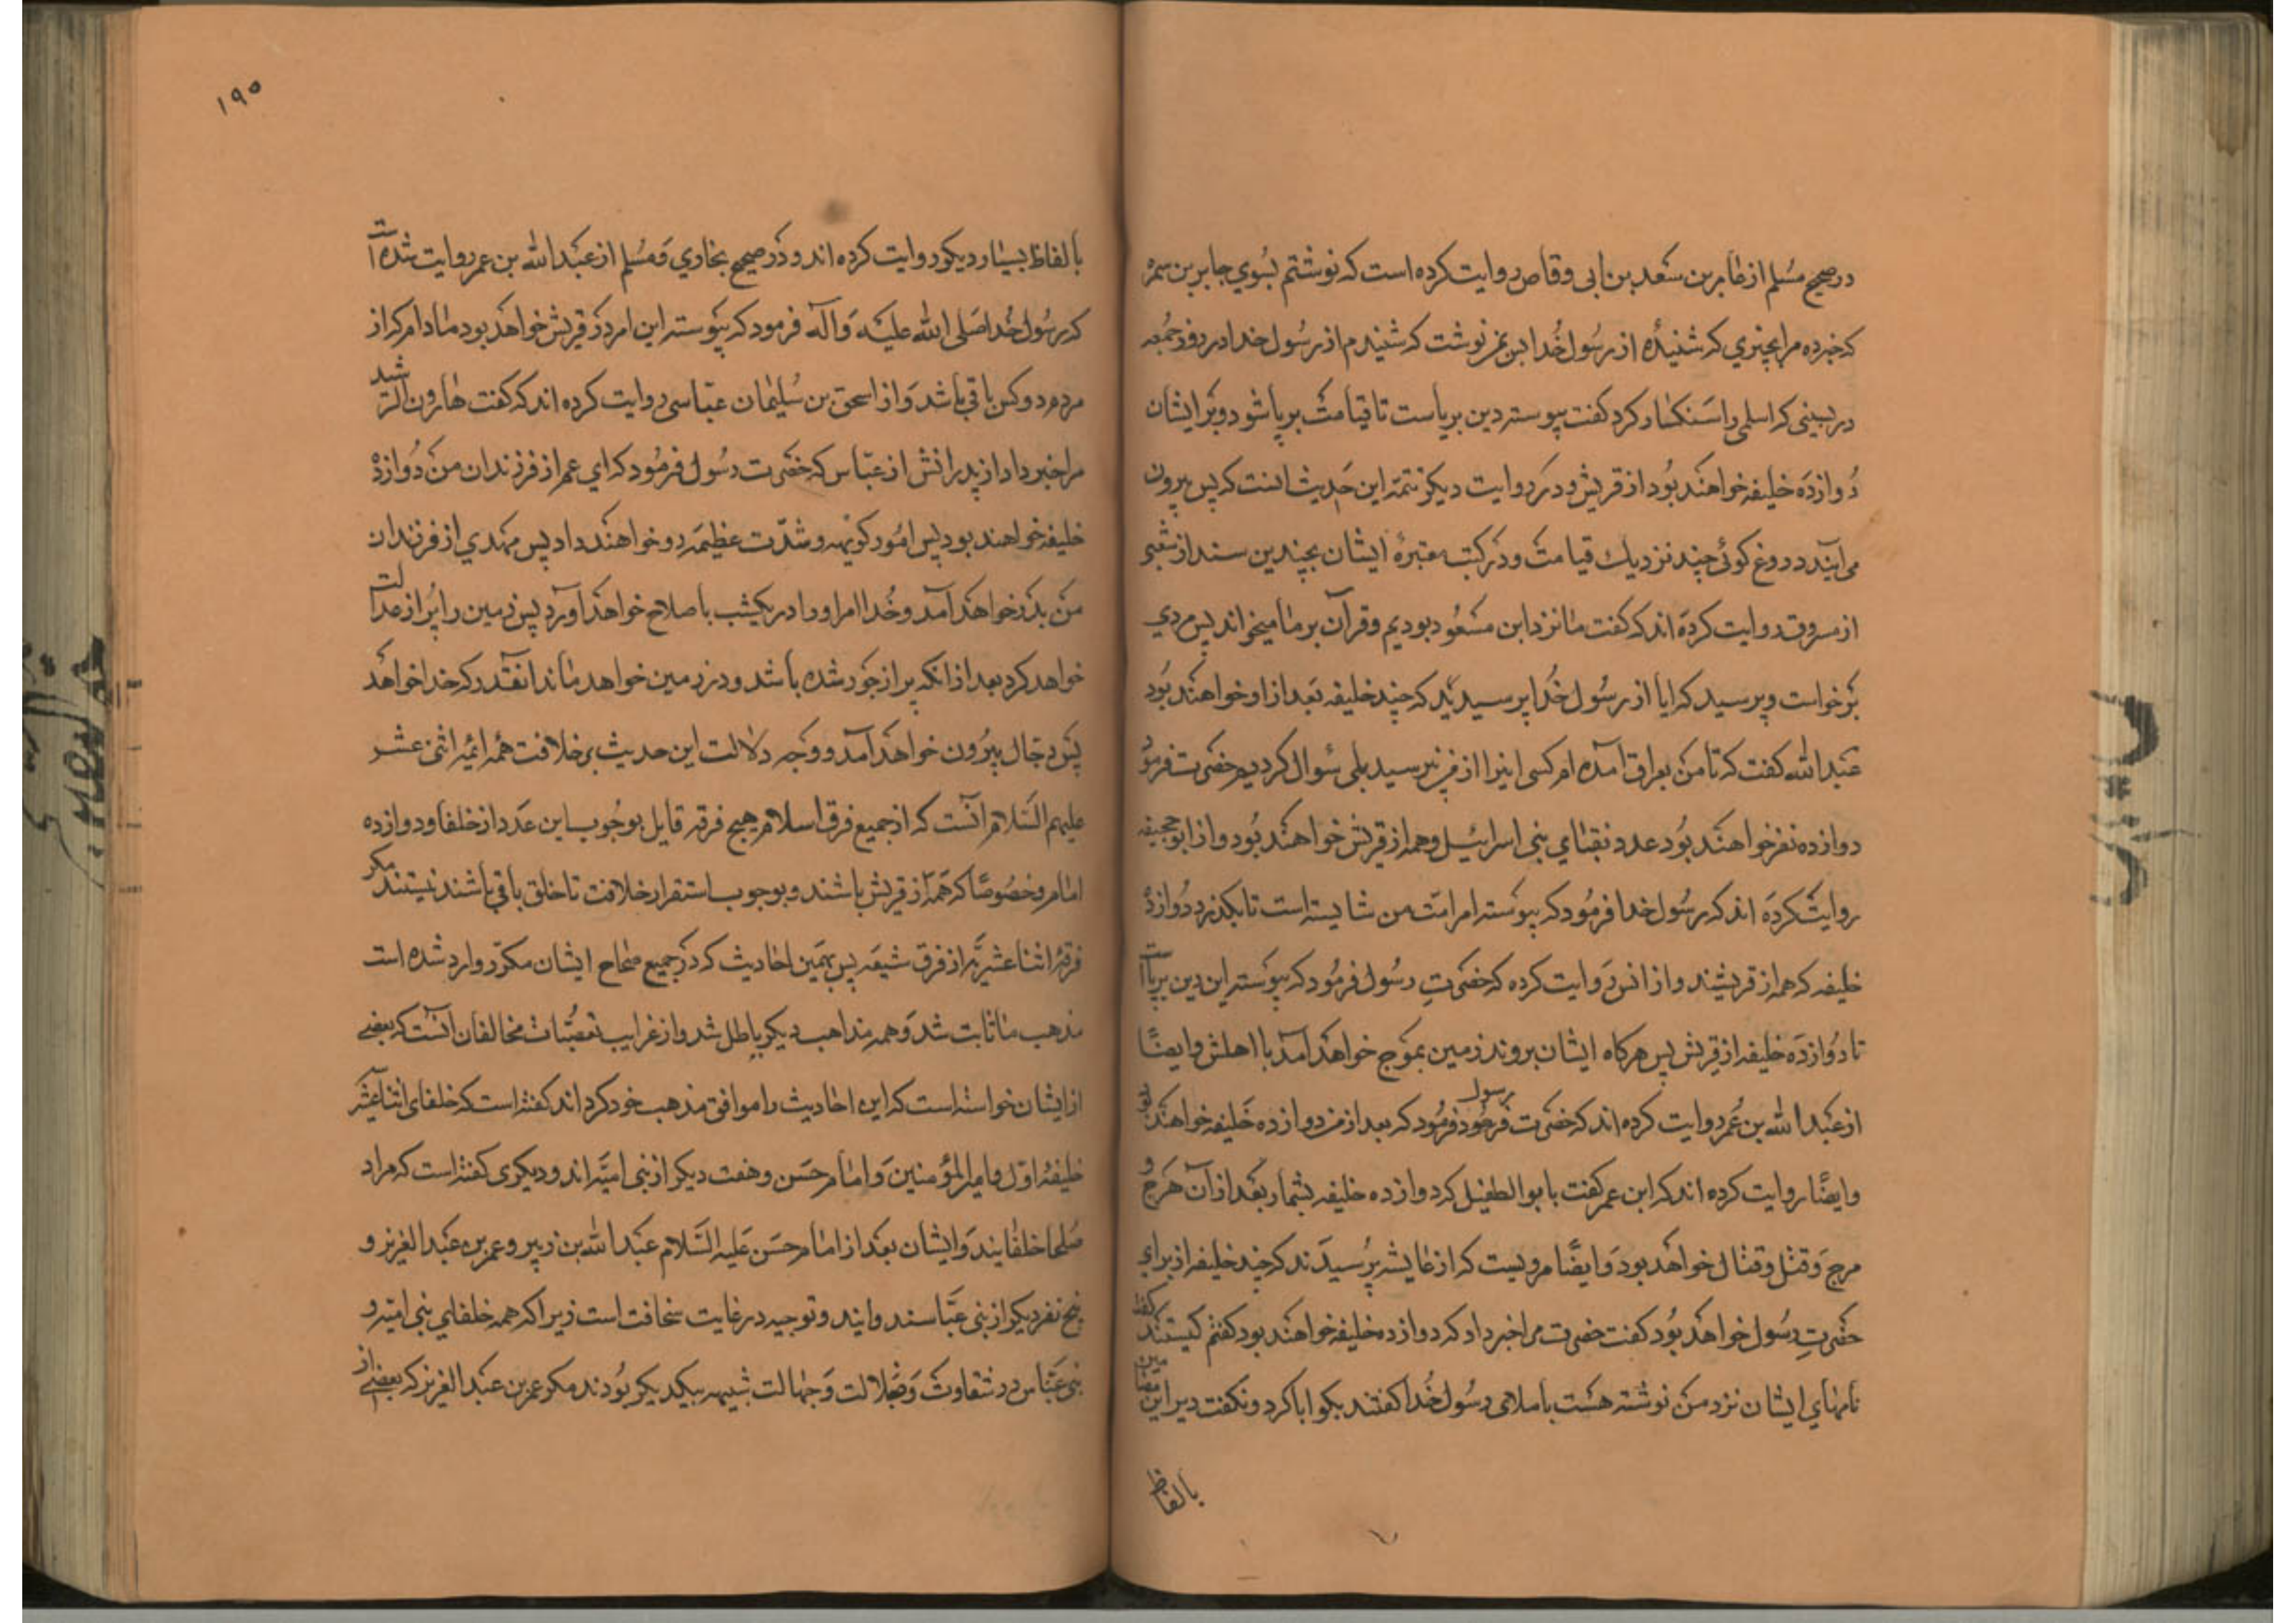 در صحیح مسلم از عامر بن سعد بن ابی وقاص روایت کرده است که نوشتم بسوی جابر بن سمره
که خبر ده مرا بچیزی که شنیدهٔ از رسول خدا بمن نوشت که شنیدم از رسول خدا در روز جمعه
در پسینی که اسلمی را سنکسار کرد کفت پیوسته دین برپاست تا قیامت برپا شود و بر ایشان
دوازده خلیفه خواهند بود از قریش و در روایت دیکر تتمه این حدیث اینست که پس بیرون
می آیند دروغ کوئی چند نزدیك قیامت و در کتب معتبرهٔ ایشان بچندین سند از شعبی
از مسروق روایت کرده اند که کفت ما نزد ابن مسعود بودیم و قرآن بر ما میخواند پس مردی
برخواست و پرسید که ایا از رسول خدا پرسیدید که چند خلیفه بعد از او خواهند بود
عبدالله کفت که تا من بعراق آمده ام کسی اینرا از من نپرسید بلی سؤال کردیم حضرت فرمود
دوازده نفر خواهند بود عدد نقبای بنی اسرائیل و همه از قریش خواهند بود و از ابوجحیفه
روایت کرده اند که رسول خدا فرمود که پیوسته امر امت من شایسته است تا بکذرد دوازده
خلیفه که همه از قریشند و از انس روایت کرده که حضرت رسول فرمود که پیوسته این دین برپا است
تا دوازده خلیفه از قریش پس هرکاه ایشان بروند زمین بموج خواهد آمد با اهلش و ایضًا
از عبدالله بن عمر روایت کرده اند که حضرت رسول فرمود که بعد از من دوازده خلیفه خواهند بود
و ایضًا روایت کرده اند که ابن عمر کفت بابو الطفیل که دوازده خلیفه بشمار بعد از آن هرج و
مرج و قتل و قتال خواهد بود و ایضًا مرویست که از عایشه پرسیدند که چند خلیفه از برای
حضرت رسول خواهد بود کفت حضرت مرا خبر داد که دوازده خلیفه خواهند بود کفتم کیستند کفت
نامهای ایشان نزد من نوشته هست باملای رسول خدا کفتند بکو ابا کرد و نکفت و بر این مضامین
بالفاظ
۱۹۵
بالفاظ بسیار دیکر روایت کرده اند و در صحیح بخاری و مسلم از عبدالله بن عمر روایت شده است
که رسول خدا صلی الله علیه و آله فرمود که پیوسته این امر در قریش خواهد بود مادام که از
مردم دو کس باقی باشد و از اسحق بن سلیمان عباسی روایت کرده اند که کفت هارون الرشید
مرا خبر داد از پدرانش از عباس که حضرت رسول فرمود که ای عم از فرزندان من دوازده
خلیفه خواهند بود پس امور کریهه و شدت عظیمه رو خواهند داد پس مهدی از فرزندان
من بدر خواهد آمد و خدا امر او را در یکشب باصلاح خواهد آورد پس زمین را پر از عدالت
خواهد کرد بعد از انکه پر از جور شده باشد و در زمین خواهد ماند انقدر که خدا خواهد
پس دجال بیرون خواهد آمد و وجه دلالت این حدیث بر خلافت همه ائمه اثنی عشر
علیهم السلام انست که از جمیع فرق اسلام هیچ فرقه قایل بوجوب این عدد از خلفا و دوازده
امام و خصوصًا که همه از قریش باشند و بوجوب استقرار خلافت تا خلق باقی باشند نیستند مکر
فرقهٔ اثنا عشریه از فرق شیعه پس بهمین احادیث که در جمیع صحاح ایشان مکرر وارد شده است
مذهب ما ثابت شد و همه مذاهب دیکر باطل شد و از غرایب تعصبات مخالفان انست که بعضی
از ایشان خواسته است که این احادیث را موافق مذهب خود کرداند کفته است که خلفای اثنا عشر
خلیفهٔ اول و امیرالمؤمنین و امام حسن و هفت دیکر از بنی امیه اند و دیکری کفته است که مراد
صلحا خلفایند و ایشان بعد از امام حسن علیه السلام عبدالله بن زبیر و عمر بن عبدالعزیز و
پنج نفر دیکر از بنی عباسند و ایند و توجیه در غایت سخافت است زیرا که همه خلفای بنی امیه و
بنی عباس در شقاوت و ضلالت و جهالت شبیه بیکدیکر بودند مکر عمر بن عبدالعزیز که بعضی از